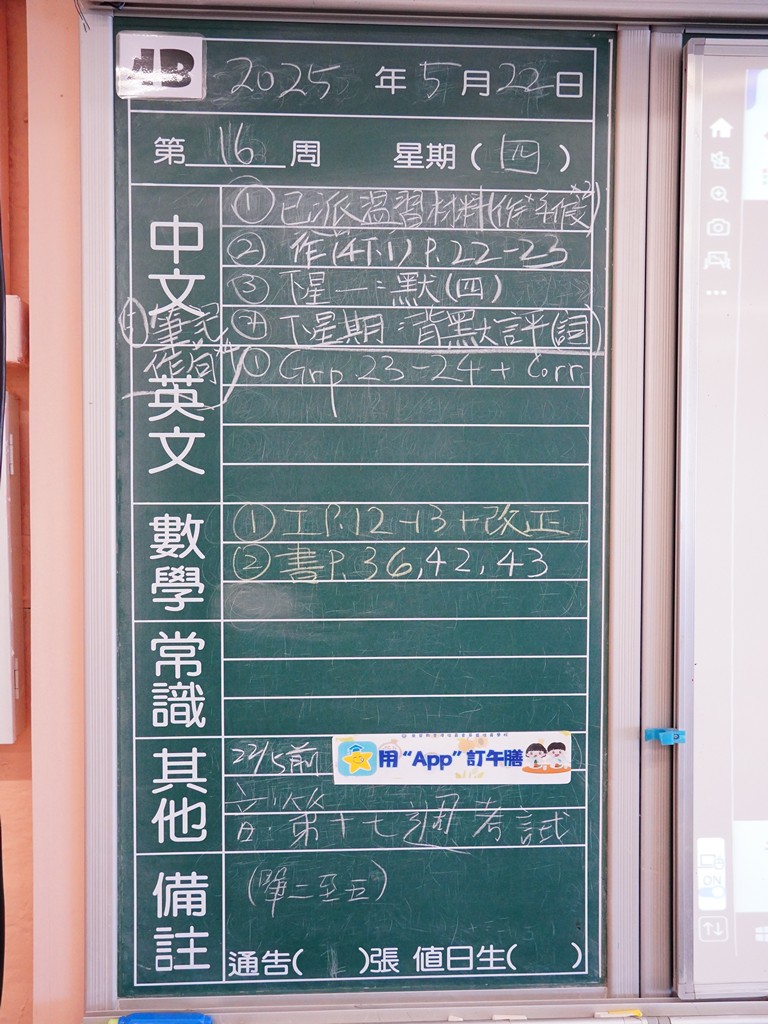 4B
2025 年 5 月 22 日
第 16 周 星期 (四)
中文
① 已派溫習材料(作
② 作(4T.1) P.22-23
③ 下星一：默(四)
④ 下星期：背默評(詞)
⑤ 筆記
作句*4
英文
① Grp 23-24 + Corr
數學
① 工P.12-13+改正
② 書P.36,42,43
常識
其他
22/5前 用“App”訂午膳
音：第十七週考試
備註
(單二至五)
通告( )張 值日生( )
ON